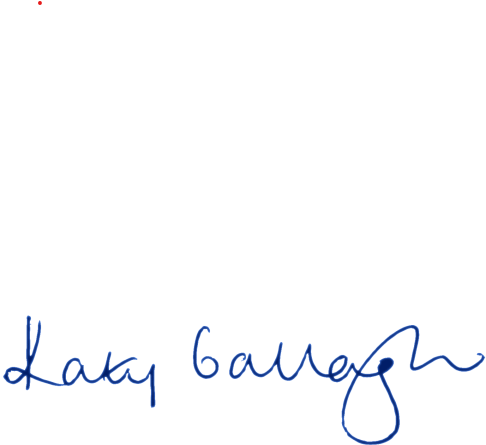 Katy Gallagher